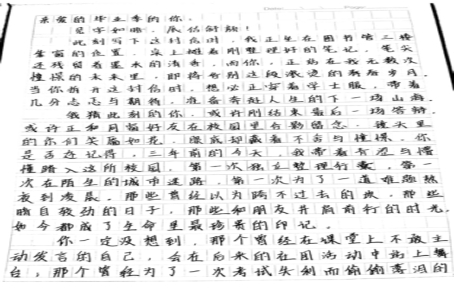 亲爱的毕业季的你：
见字如晤，展信舒颜！
此刻写下这封信时，我正坐在图书馆三楼
靠窗的位置，桌上摊着刚整理好的笔记，笔尖
还残留着墨水的清香，而你，正站在我无数次
憧憬的未来里，即将告别这段滚烫的青春岁月。
当你拆开这封信时，想必正穿着学士服，带着
几分忐忑与期待，准备奔赴人生的下一场山海。
我猜此刻的你，或许刚结束最后一场答辩，
或许正和同窗好友在校园里合影留念，镜头里
的你们笑靥如花，眼底却藏着不舍与憧憬。你
是否还记得，三年前的今天，我带着青涩与懵
懂踏入这所校园，第一次独立整理行囊，第一
次在陌生的城市迷路，第一次为了一道难题熬
夜到凌晨，那些曾经以为跨不过去的坎，那些
暗自较劲的日子，那些和朋友并肩前行的时光，
如今都成了生命里最珍贵的印记。
你一定没想到，那个曾经在课堂上不敢主
动发言的自己，会在后来的社团活动中站上舞
台；那个曾经为了一次考试失利而偷偷落泪的